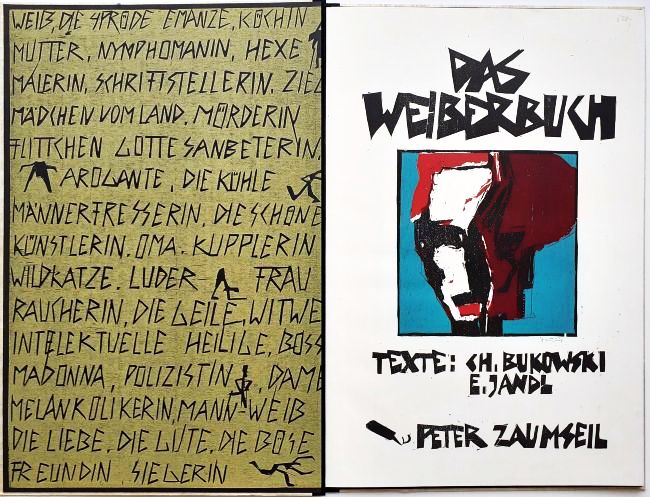 WEIB, DIE SPRÖDE EMANZE, KÖCHIN
MUTTER, NYMPHOMANIN, HEXE
MALERIN, SCHRIFTSTELLERIN. ZIEL
MÄDCHEN VOM LAND. MÖRDERIN
FLITTCHEN GOTTESANBETERIN.
AROGANTE, DIE KÜHLE
MÄNNERFRESSERIN, DIE SCHÖNE
KÜNSTLERIN. OMA. KUPPLERIN
WILDKATZE. LUDER FRAU
RAUCHERIN, DIE GEILE, WITWE
INTELEKTUELLE HEILIGE, BOSS
MADONNA, POLIZISTIN, DAME
MELANKOLIKERIN, MANN-WEIB
DIE LIEBE. DIE GUTE. DIE BÖSE
FREUNDIN SIEGERIN
DAS
WEIBERBUCH
TEXTE: CH. BUKOWSKI
E. JANDL
PETER ZAUMSEIL